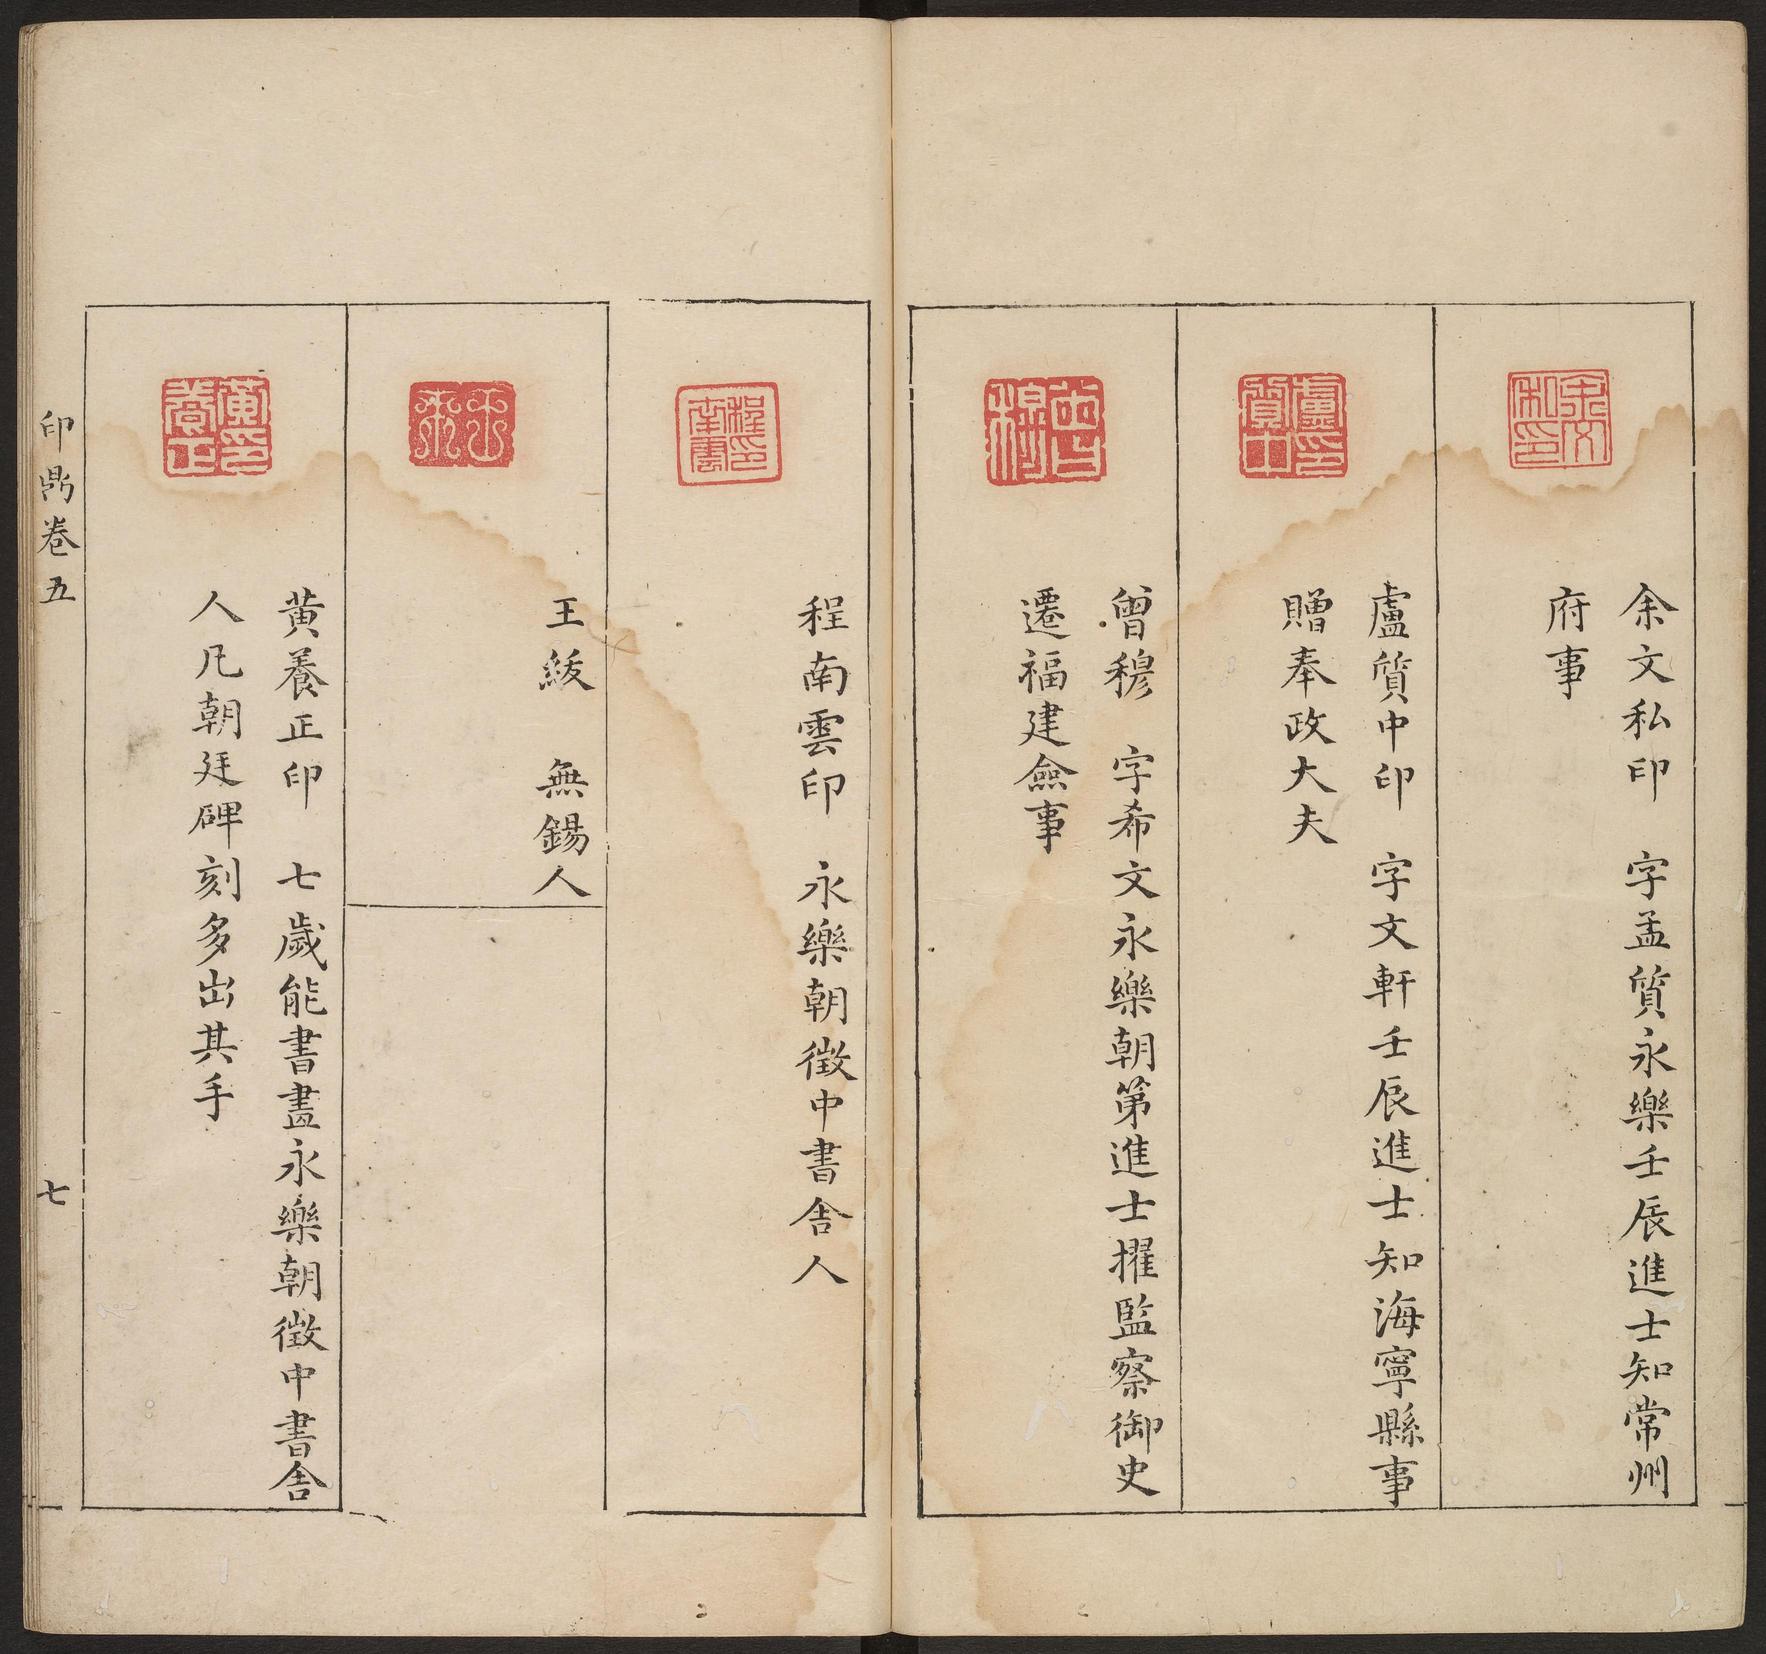 余文私印
余文私印　字孟質永樂壬辰進士知常州
府事
盧質中印
盧質中印　字文軒壬辰進士知海寧縣事
贈奉政大夫
曾穆
曾穆　字希文永樂朝第進士擢監察御史
遷福建僉事
程南雲印
程南雲印　永樂朝徵中書舍人
王紱
王紱　無錫人
黃養正印
黃養正印　七歲能書畫永樂朝徵中書舍
人凡朝廷碑刻多出其手
印鼎卷五
七